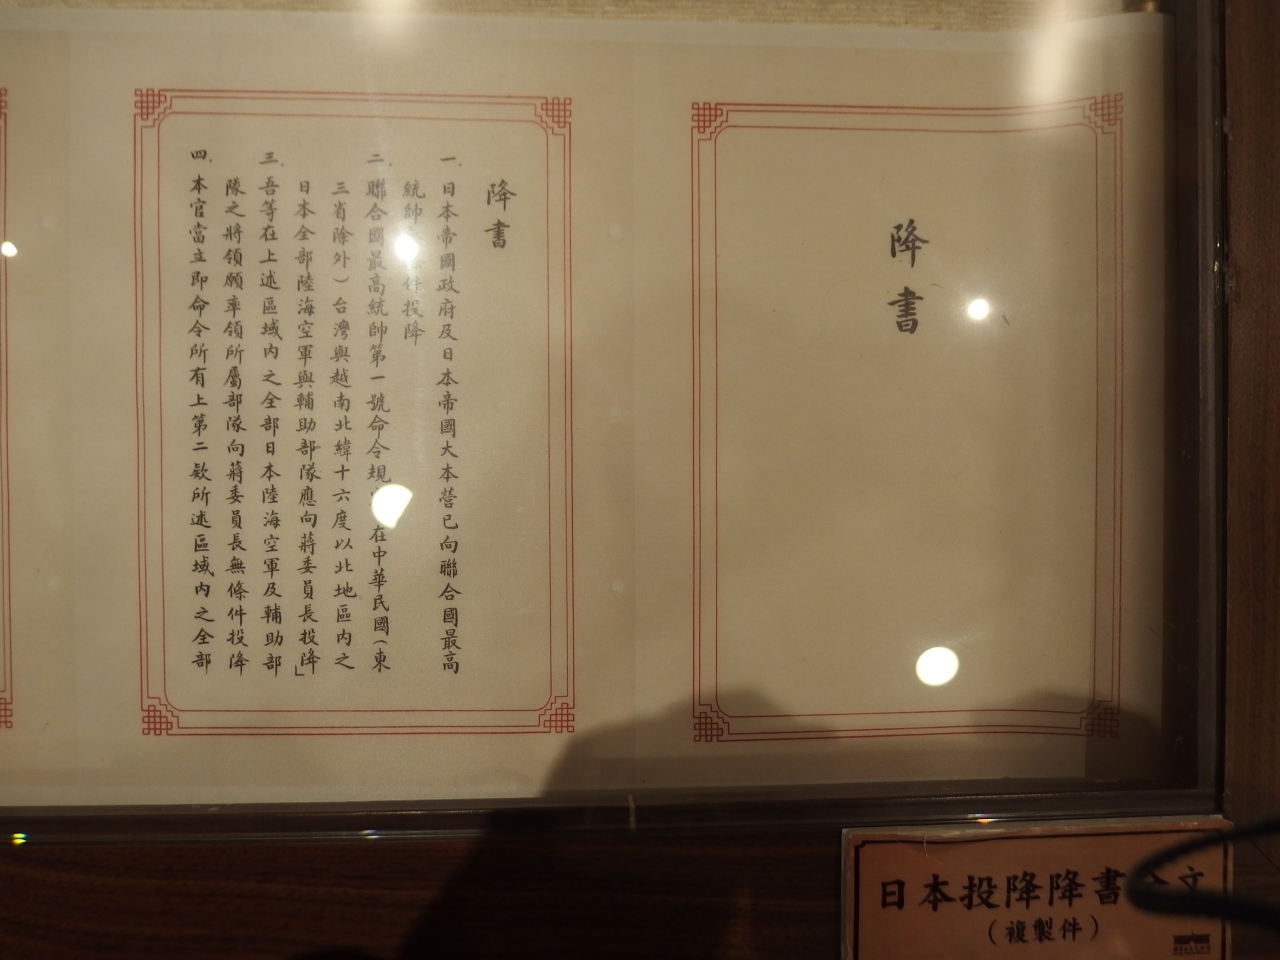 降書
降書
一.日本帝國政府及日本帝國大本營已向聯合國最高
統帥件投降
二.聯合國最高統帥第一號命令規在中華民國(東
三省除外)台灣與越南北緯十六度以北地區內之
日本全部陸海空軍與輔助部隊應向蔣委員長投降」
三.吾等在上述區域內之全部日本陸海空軍及輔助部
隊之將領願率領所屬部隊向蔣委員長無條件投降
四.本官當立即命令所有上第二款所述區域內之全部
日本投降降書文
(複製件)